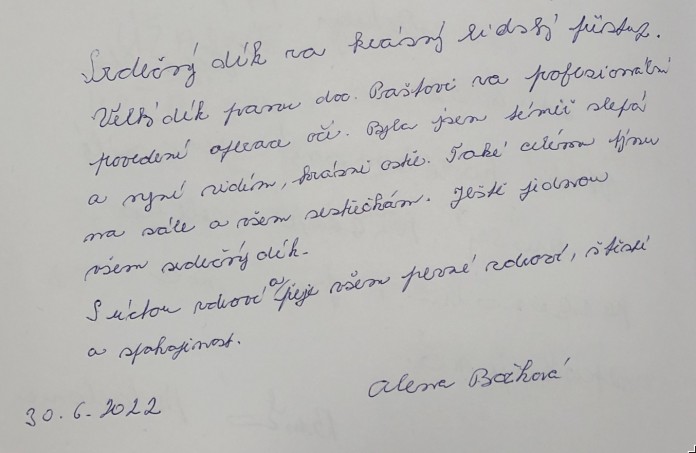 Srdečný dík za krásný lidský přístup.
Velký dík panu doc. Baštovi za profesionální
povedení operace očí. Byla jsem téměř slepá
a nyní vidím, krásně ostře. Také celému týmu
na sále a všem sestřičkám. Ještě jednou
všem srdečný dík.
S úctou zdraví a přeje všem pevné zdraví, štěstí
a spokojenost.
Alena
30.6.2022